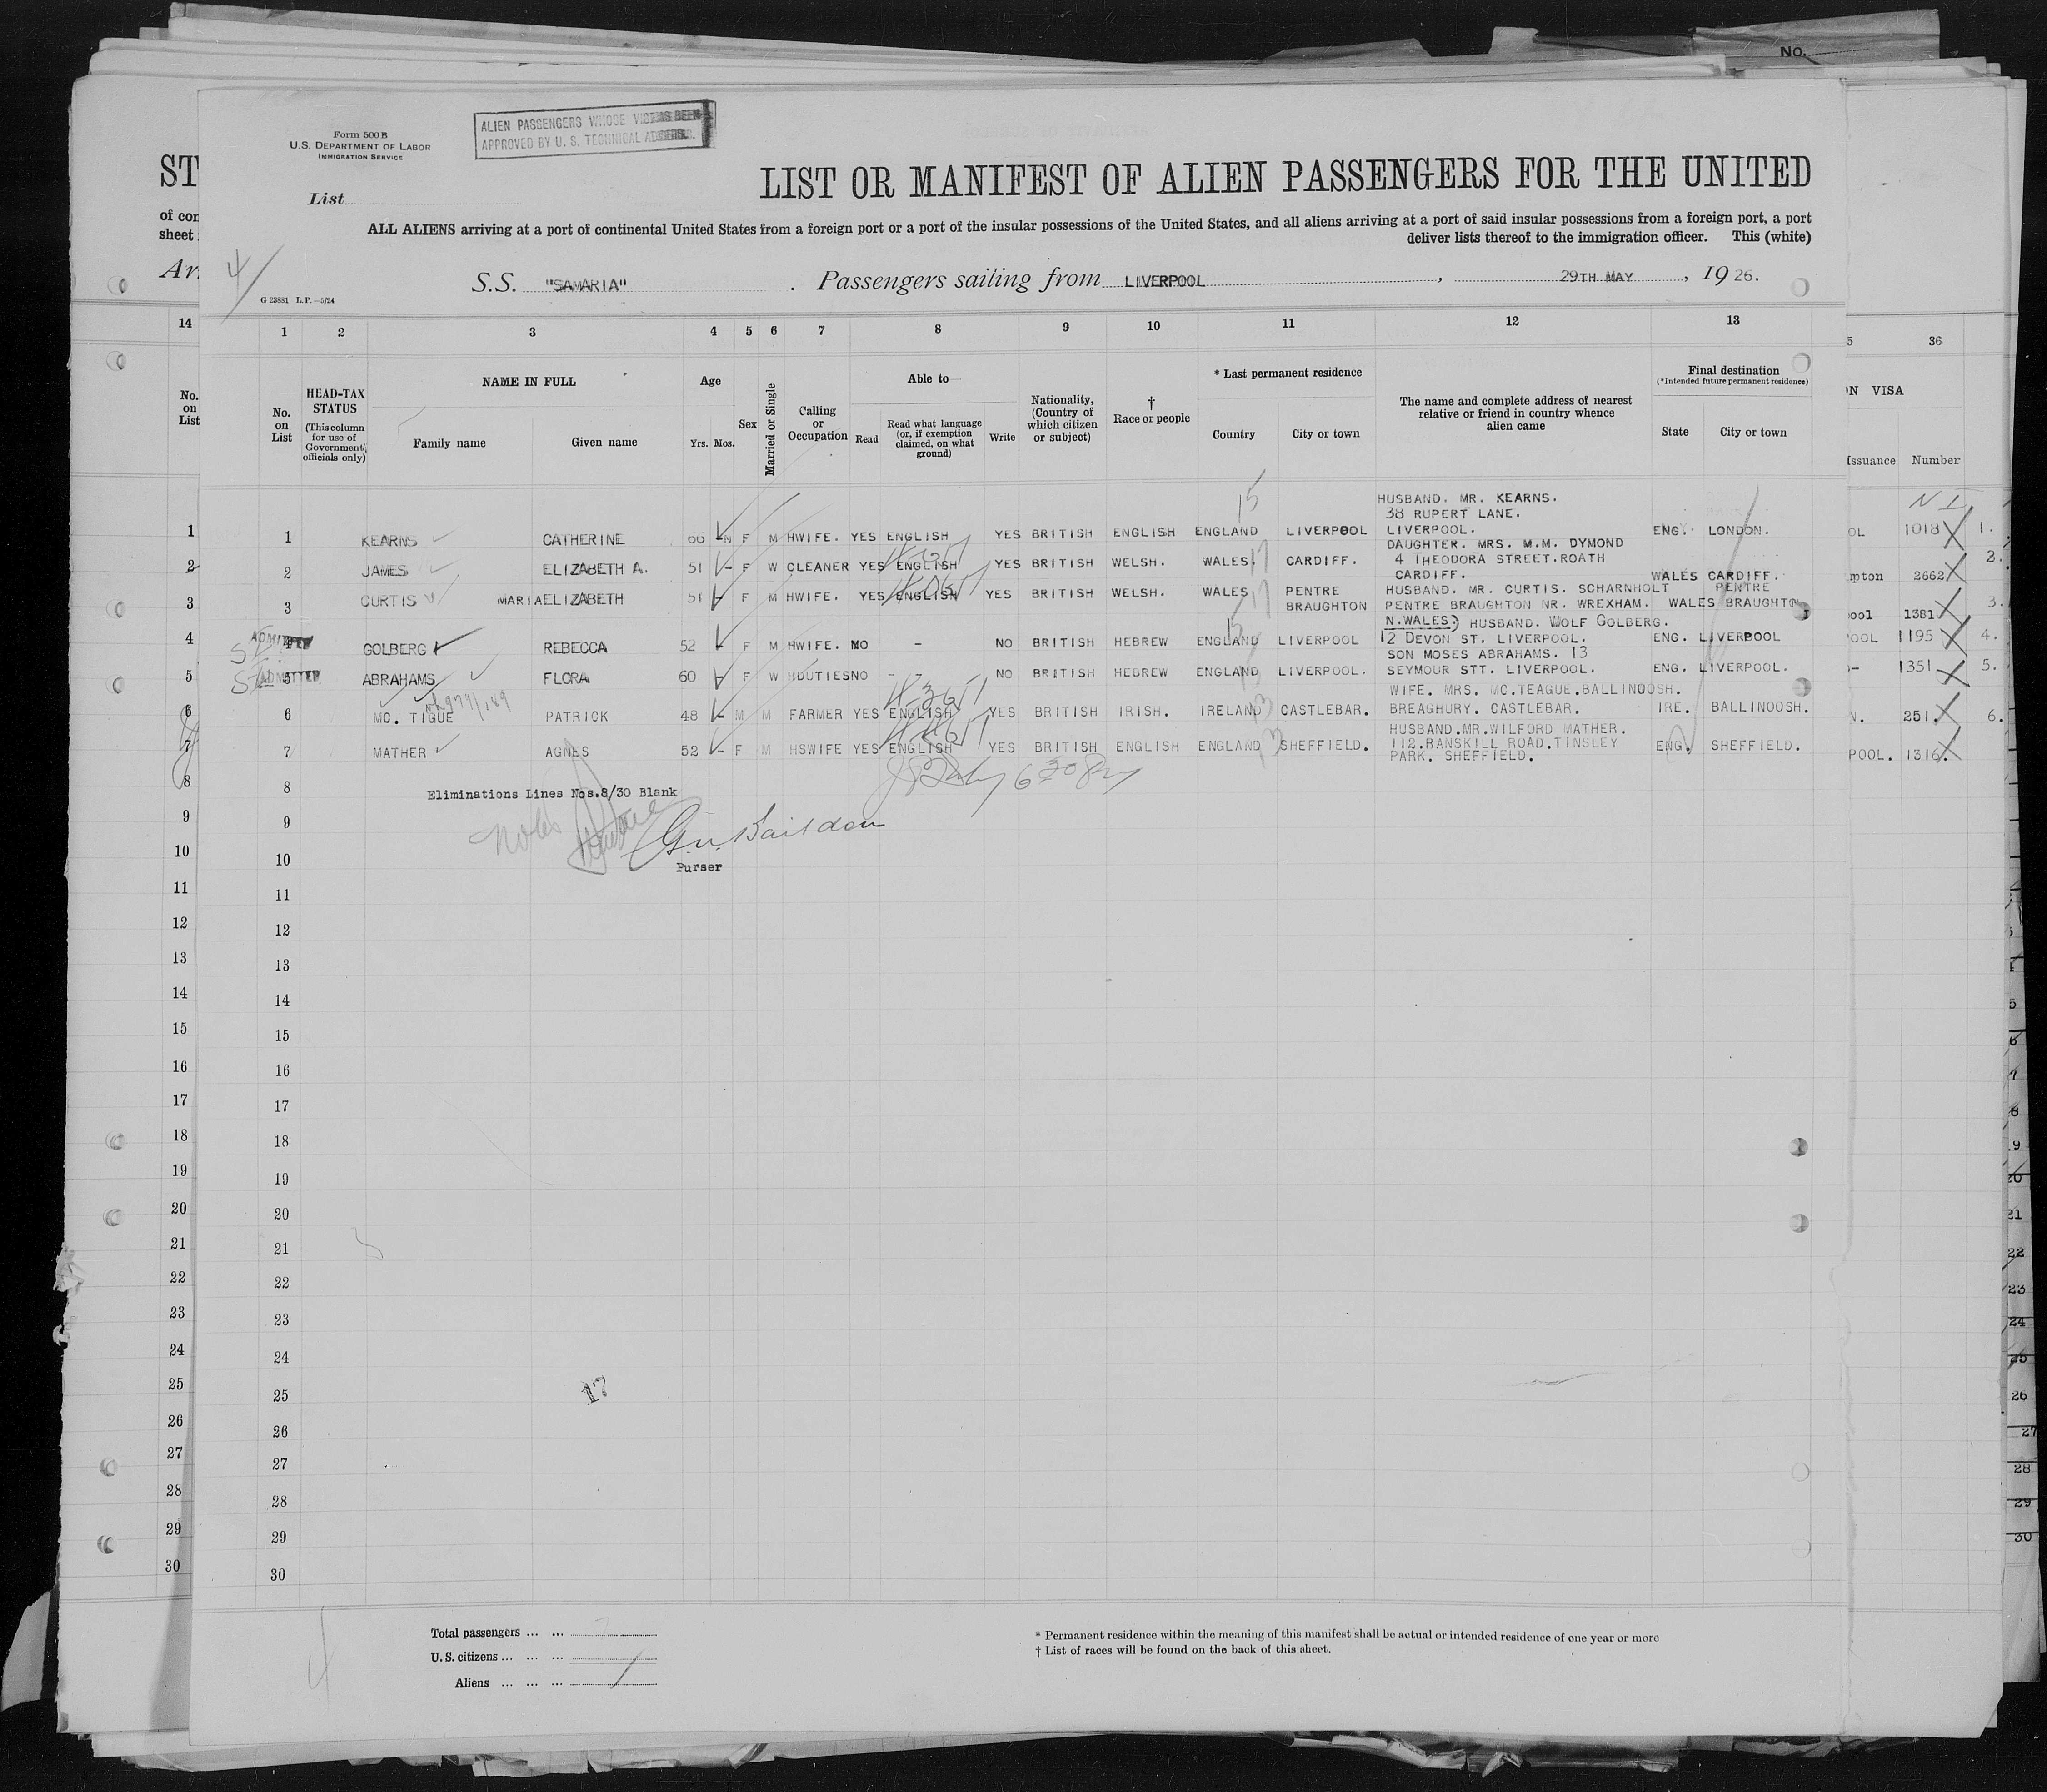 No.
Form 500B
U.S. DEPARTMENT OF LABOR
IMMIGRATION SERVICE
ALIEN PASSENGERS WHOSE BEEN
APPROVED BY U. S. TECHNICAL
ST
LIST OR MANIFEST OF ALIEN PASSENGERS FOR THE UNITED
List
of con
sheet
ALL ALIENS arriving at a port of continental United States from a foreign port or a port of the insular possessions of the United States, and all aliens arriving at a port of said insular possessions from a foreign port, a port
deliver lists thereof to the immigration officer. This (white)
4/
Ar
S.S. "SAMARIA" . Passengers sailing from LIVERPOOL , 29TH MAY , 1926.
G 23881 L.P.—5/24
14 1 2 3 4 5 6 7 8 9 10 11 12 13 36
No. on List
No. on List
HEAD-TAX STATUS (This column for use of Government officials only)
NAME IN FULL
Family name Given name
Age
Yrs. Mos.
Sex
Married or Single
Calling or Occupation
Able to—
Read
Read what language (or, if exemption claimed, on what ground)
Write
Nationality, (Country of which citizen or subject)
† Race or people
* Last permanent residence
Country City or town
The name and complete address of nearest relative or friend in country whence alien came
Final destination
(*Intended future permanent residence)
State City or town
ON VISA
Issuance Number
N I
15
HUSBAND. MR. KEARNS.
38 RUPERT LANE.
1 1 KEARNS CATHERINE 66 F M HWIFE. YES ENGLISH YES BRITISH ENGLISH ENGLAND LIVERPOOL LIVERPOOL. ENG. LONDON. OL 1018 1.
DAUGHTER. MRS. M.M. DYMOND
2 2 JAMES ELIZABETH A. 51 - F W CLEANER YES ENGLISH YES BRITISH WELSH. WALES. 17 CARDIFF. 4 THEODORA STREET.ROATH 2.
CARDIFF. WALES CARDIFF. mpton 2662
3 3 CURTIS MARIA ELIZABETH 51 F M HWIFE. YES ENGLISH YES BRITISH WELSH. WALES 17 PENTRE BRAUGHTON HUSBAND. MR. CURTIS. SCHARNHOLT PENTRE
PENTRE BRAUGHTON NR. WREXHAM. WALES BRAUGHTON ool 1381 3.
N.WALES.) HUSBAND. WOLF GOLBERG.
ADMITTED
4 4 GOLBERG REBECCA 52 - F M HWIFE. NO - NO BRITISH HEBREW ENGLAND LIVERPOOL 12 DEVON ST. LIVERPOOL. ENG. LIVERPOOL OOL 1195 4.
SON MOSES ABRAHAMS. 13
ADMITTED
5 5 ABRAHAMS FLORA 60 F W HDUTIES NO - - NO BRITISH HEBREW ENGLAND LIVERPOOL. SEYMOUR STT. LIVERPOOL. ENG. LIVERPOOL. 1351 5.
WIFE. MRS. MC.TEAGUE.BALLINOOSH.
6 6 MC. TIGUE PATRICK 48 - M M FARMER YES ENGLISH YES BRITISH IRISH. IRELAND CASTLEBAR. BREAGHURY. CASTLEBAR. IRE. BALLINOOSH. N. 251. 6.
HUSBAND.MR.WILFORD MATHER.
7 7 MATHER AGNES 52 - F M HSWIFE YES ENGLISH YES BRITISH ENGLISH ENGLAND SHEFFIELD. 112.RANSKILL ROAD.TINSLEY
PARK. SHEFFIELD. ENG. SHEFFIELD. POOL. 1316.
8 8
Eliminations Lines Nos.8/30 Blank
9 9
10 10
Purser
11 11
12 12
13 13
14 14
15 15
16 16
17 17
18 18
19 19
20 20
21 21
22 22
23 23
24 24
25 25
17
26 26
27 27
28 28
29 29
30 30
Total passengers ... ...
U.S. citizens ... ... ...
Aliens ... ... ...
* Permanent residence within the meaning of this manifest shall be actual or intended residence of one year or more
† List of races will be found on the back of this sheet.